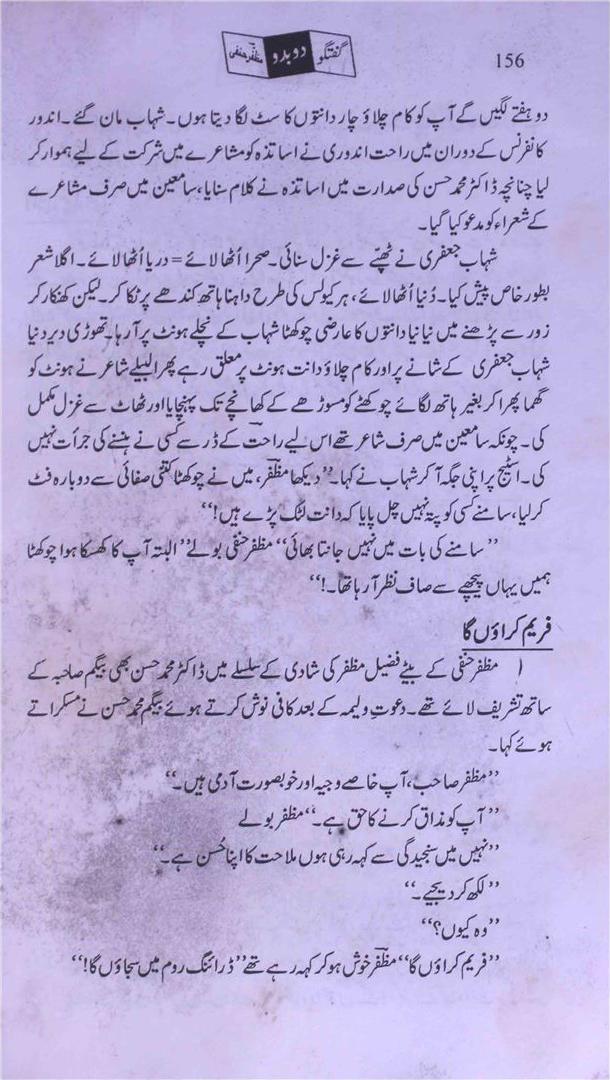 156
گفتگو دوبدو مظفر حنفی
دو ہفتے لگیں گے آپ کو کام چلاؤ چار دانتوں کا سٹ لگا دیتا ہوں۔ شہاب مان گئے۔ اندور
کانفرنس کے دوران میں راحت اندوری نے اساتذہ کو مشاعرے میں شرکت کے لیے ہموار کر
لیا چنانچہ ڈاکٹر محمد حسن کی صدارت میں اساتذہ نے کلام سنایا، سامعین میں صرف مشاعرے
کے شعراء کو مدعو کیا گیا۔
شہاب جعفری نے ٹھپّے سے غزل سنائی۔ صحرا اُٹھا لائے = دریا اُٹھا لائے۔ اگلا شعر
بطور خاص پیش کیا۔ دُنیا اُٹھا لائے، ہرکیولس کی طرح داہنا ہاتھ کندھے پر ٹکا کر۔ لیکن کھنکار کر
زور سے پڑھنے میں نیا نیا دانتوں کا عارضی چوکھٹا شہاب کے نچلے ہونٹ پر آ رہا۔ تھوڑی دیر دنیا
شہاب جعفری کے شانے پر اور کام چلاؤ دانت ہونٹ پر معلق رہے پھر البیلے شاعر نے ہونٹ کو
گھما پھرا کر بغیر ہاتھ لگائے چوکھٹے کو مسوڑھے کے کھانچے تک پہنچایا اور ٹھاٹ سے غزل مکمل
کی۔ چونکہ سامعین میں صرف شاعر تھے اس لیے راحتؔ کے ڈر سے کسی نے ہنسنے کی جرأت نہیں
کی۔ اسٹیج پر اپنی جگہ آ کر شہاب نے کہا۔ ’’دیکھا مظفرؔ، میں نے چوکھٹا کتنی صفائی سے دوبارہ فٹ
کر لیا، سامنے کسی کو پتہ نہیں چل پایا کہ دانت لٹک پڑے ہیں!‘‘
’’سامنے کی بات میں نہیں جانتا بھائی‘‘ مظفر حنفی بولے ’’البتہ آپ کا کھسکا ہوا چوکھٹا
ہمیں یہاں پیچھے سے صاف نظر آ رہا تھا۔!‘‘
فریم کراؤں گا
مظفر حنفی کے بیٹے فضیل مظفر کی شادی کے سلسلے میں ڈاکٹر محمد حسن بھی بیگم صاحبہ کے
ساتھ تشریف لائے تھے۔ دعوتِ ولیمہ کے بعد کافی نوش کرتے ہوئے بیگم محمد حسن نے مسکراتے
ہوئے کہا۔
’’مظفر صاحب، آپ خاصے وجیہ اور خوبصورت آدمی ہیں۔‘‘
’’آپ کو مذاق کرنے کا حق ہے۔‘‘ مظفر بولے
’’نہیں میں سنجیدگی سے کہہ رہی ہوں ملاحت کا اپنا حُسن ہے۔‘‘
’’لکھ کر دیجیے۔‘‘
’’وہ کیوں؟‘‘
’’فریم کراؤں گا‘‘ مظفرؔ خوش ہو کر کہہ رہے تھے ’’ڈرائنگ روم میں سجاؤں گا!‘‘